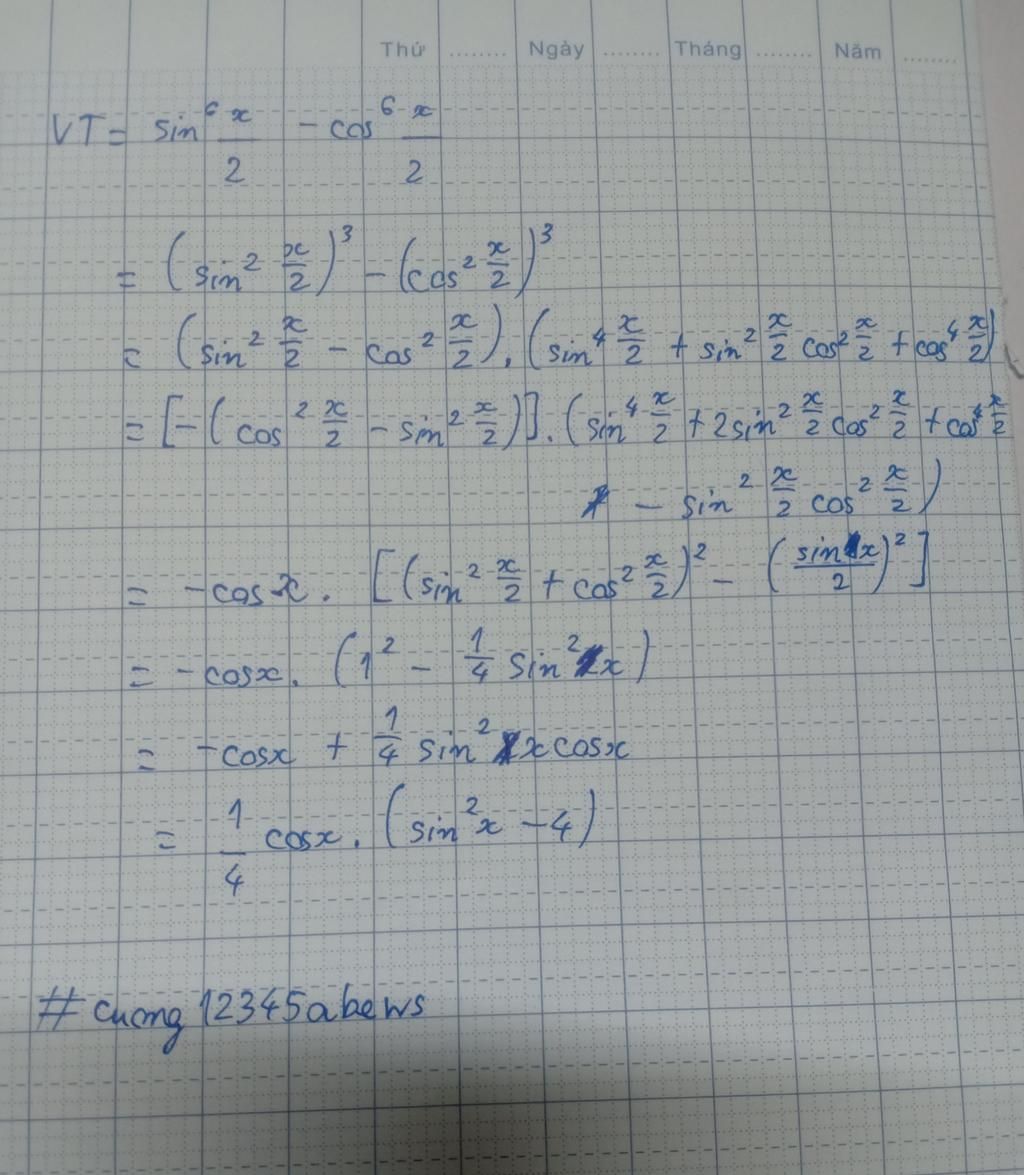 Thứ ........ Ngày ........ Tháng ........ Năm ........
VT = sin⁶ x/2 - cos⁶ x/2
= (sin² x/2)³ - (cos² x/2)³
= (sin² x/2 - cos² x/2) . (sin⁴ x/2 + sin² x/2 cos² x/2 + cos⁴ x/2)
= [-(cos² x/2 - sin² x/2)] . (sin⁴ x/2 + 2sin² x/2 cos² x/2 + cos⁴ x/2
- sin² x/2 cos² x/2)
= -cosx . [(sin² x/2 + cos² x/2)² - (sinx/2)²]
= -cosx . (1² - 1/4 sin²x)
= -cosx + 1/4 sin²x cosx
= 1/4 cosx . (sin²x - 4)
# cuong12345abews